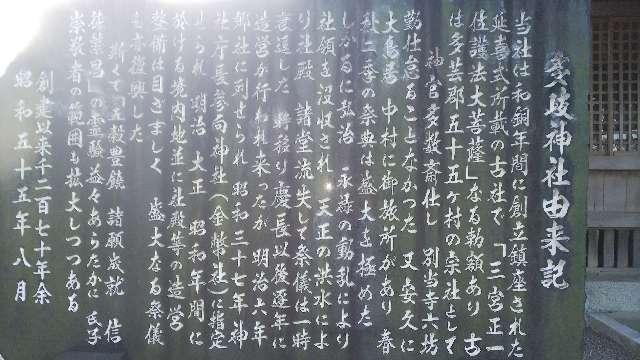 多岐神社由来記
当社は和銅年間に創立鎮座された
延喜式所載の古社で「三宮正一
位護法大菩薩」なる勅額あり 古
は多芸郡五十五ヶ村の宗社として
神官多数斎仕し 別当寺六坊
勤仕怠ることなかった 又安久に
大鳥居 中村に御旅所があり 春
秋二季の祭典は盛大を極めた
しかるに弘治 永禄の動乱により
社領を没収され 天正の洪水によ
り社殿 諸堂流失して祭儀は一時
衰退した 時移り慶長以後逐年に
造営が行われ来ったが 明治六年
郷社に列せられ 昭和三十七年神
社庁長参向神社(金幣社)に指定
せられ 明治 大正 昭和年間に
於ける境内地並に社殿等の造営
整備は目ざましく 盛大なる祭儀
も亦復興した
斯くて「五穀豊饒 諸願成就 信
徒繁昌」の霊験益々あらたかに 氏子
崇敬者の範囲も拡大しつつある
創建以来千二百七十年余
昭和五十五年八月